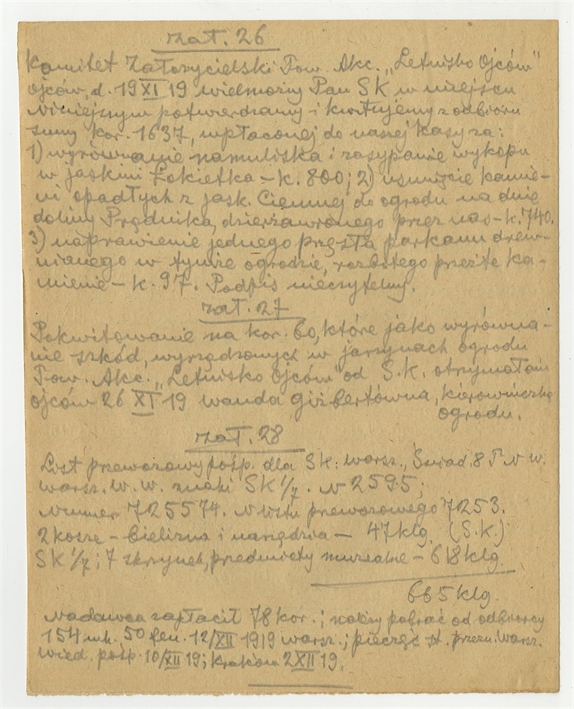 Zał. 26
Komitet Założycielski Tow. Akc. „Letnisko Ojców"
Ojców, d. 19 XI 19 Wielmożny Pan SK w miejscu
Niniejszym potwierdzamy i kwitujemy z odbioru
sumy kor. 1637, wpłaconej do naszej kasy za:
1) wyrównanie namuliska i zasypanie wykopu
w jaskini Łokietka – k. 800; 2) usunięcie kamie-
ni opadłych z jask. Ciemnej do ogrodu na dnie
doliny Prądnika, dzierżawionego przez nas – k. 740.
3) naprawienie jednego przęsła parkanu drew-
nianego w tymże ogrodzie, rozbitego przez te ka-
mienie – k. 97. Podpis nieczytelny.
Zał. 27
Pokwitowanie na kor. 60, które jako wyrówna-
nie szkód, wyrządzonych w jarzynach ogrodu
Tow. Akc. „Letnisko Ojców" od S.K. otrzymałam
Ojców 26 XI 19 Wanda Giżbertówna, kierowniczka
ogrodu.
Zał. 28
List przewozowy pośp. dla SK. Warsz.,
Warsz. W. W. znaki SK 1/7. N 2595;
Numer 725574. N listu przewozowego 7253.
2 kosze – bielizna i narzędzia – 47 klg. (S.K.)
SK 1/7; 7 skrzynek, przedmioty muzealne – 618 klg.
665 klg.
Nadawca zapłacił 78 kor.; należy pobrać od odbiorcy
154 mk. 50 fen. 12/XII 1919 Warsz.; pieczęć st. przezn. Warsz.
Wied. pośp. 10/XII 19; Kraków 2 XII 19.